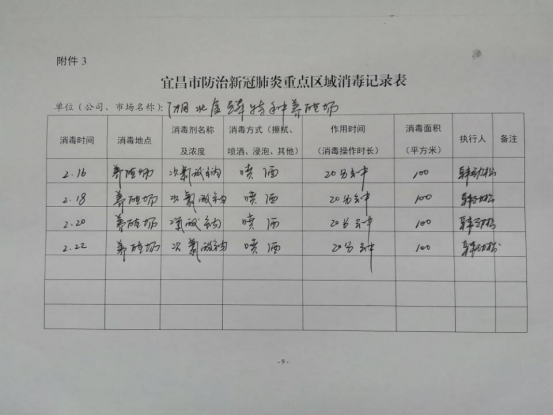 附件 3
宜昌市防治新冠肺炎重点区域消毒记录表
单位（公司、市场名称）：湖北 特种养殖场
消毒时间 消毒地点 消毒剂名称及浓度 消毒方式（擦拭、喷洒、浸泡、其他） 作用时间（消毒操作时长） 消毒面积（平方米） 执行人 备注
2.16 养殖场 次氯酸钠 喷洒 20分钟 100
2.18 养殖场 次氯酸钠 喷洒 20分钟 100
2.20 养殖场 次氯酸钠 喷洒 20分钟 100
2.22 养殖场 次氯酸钠 喷洒 20分钟 100
- 9 -